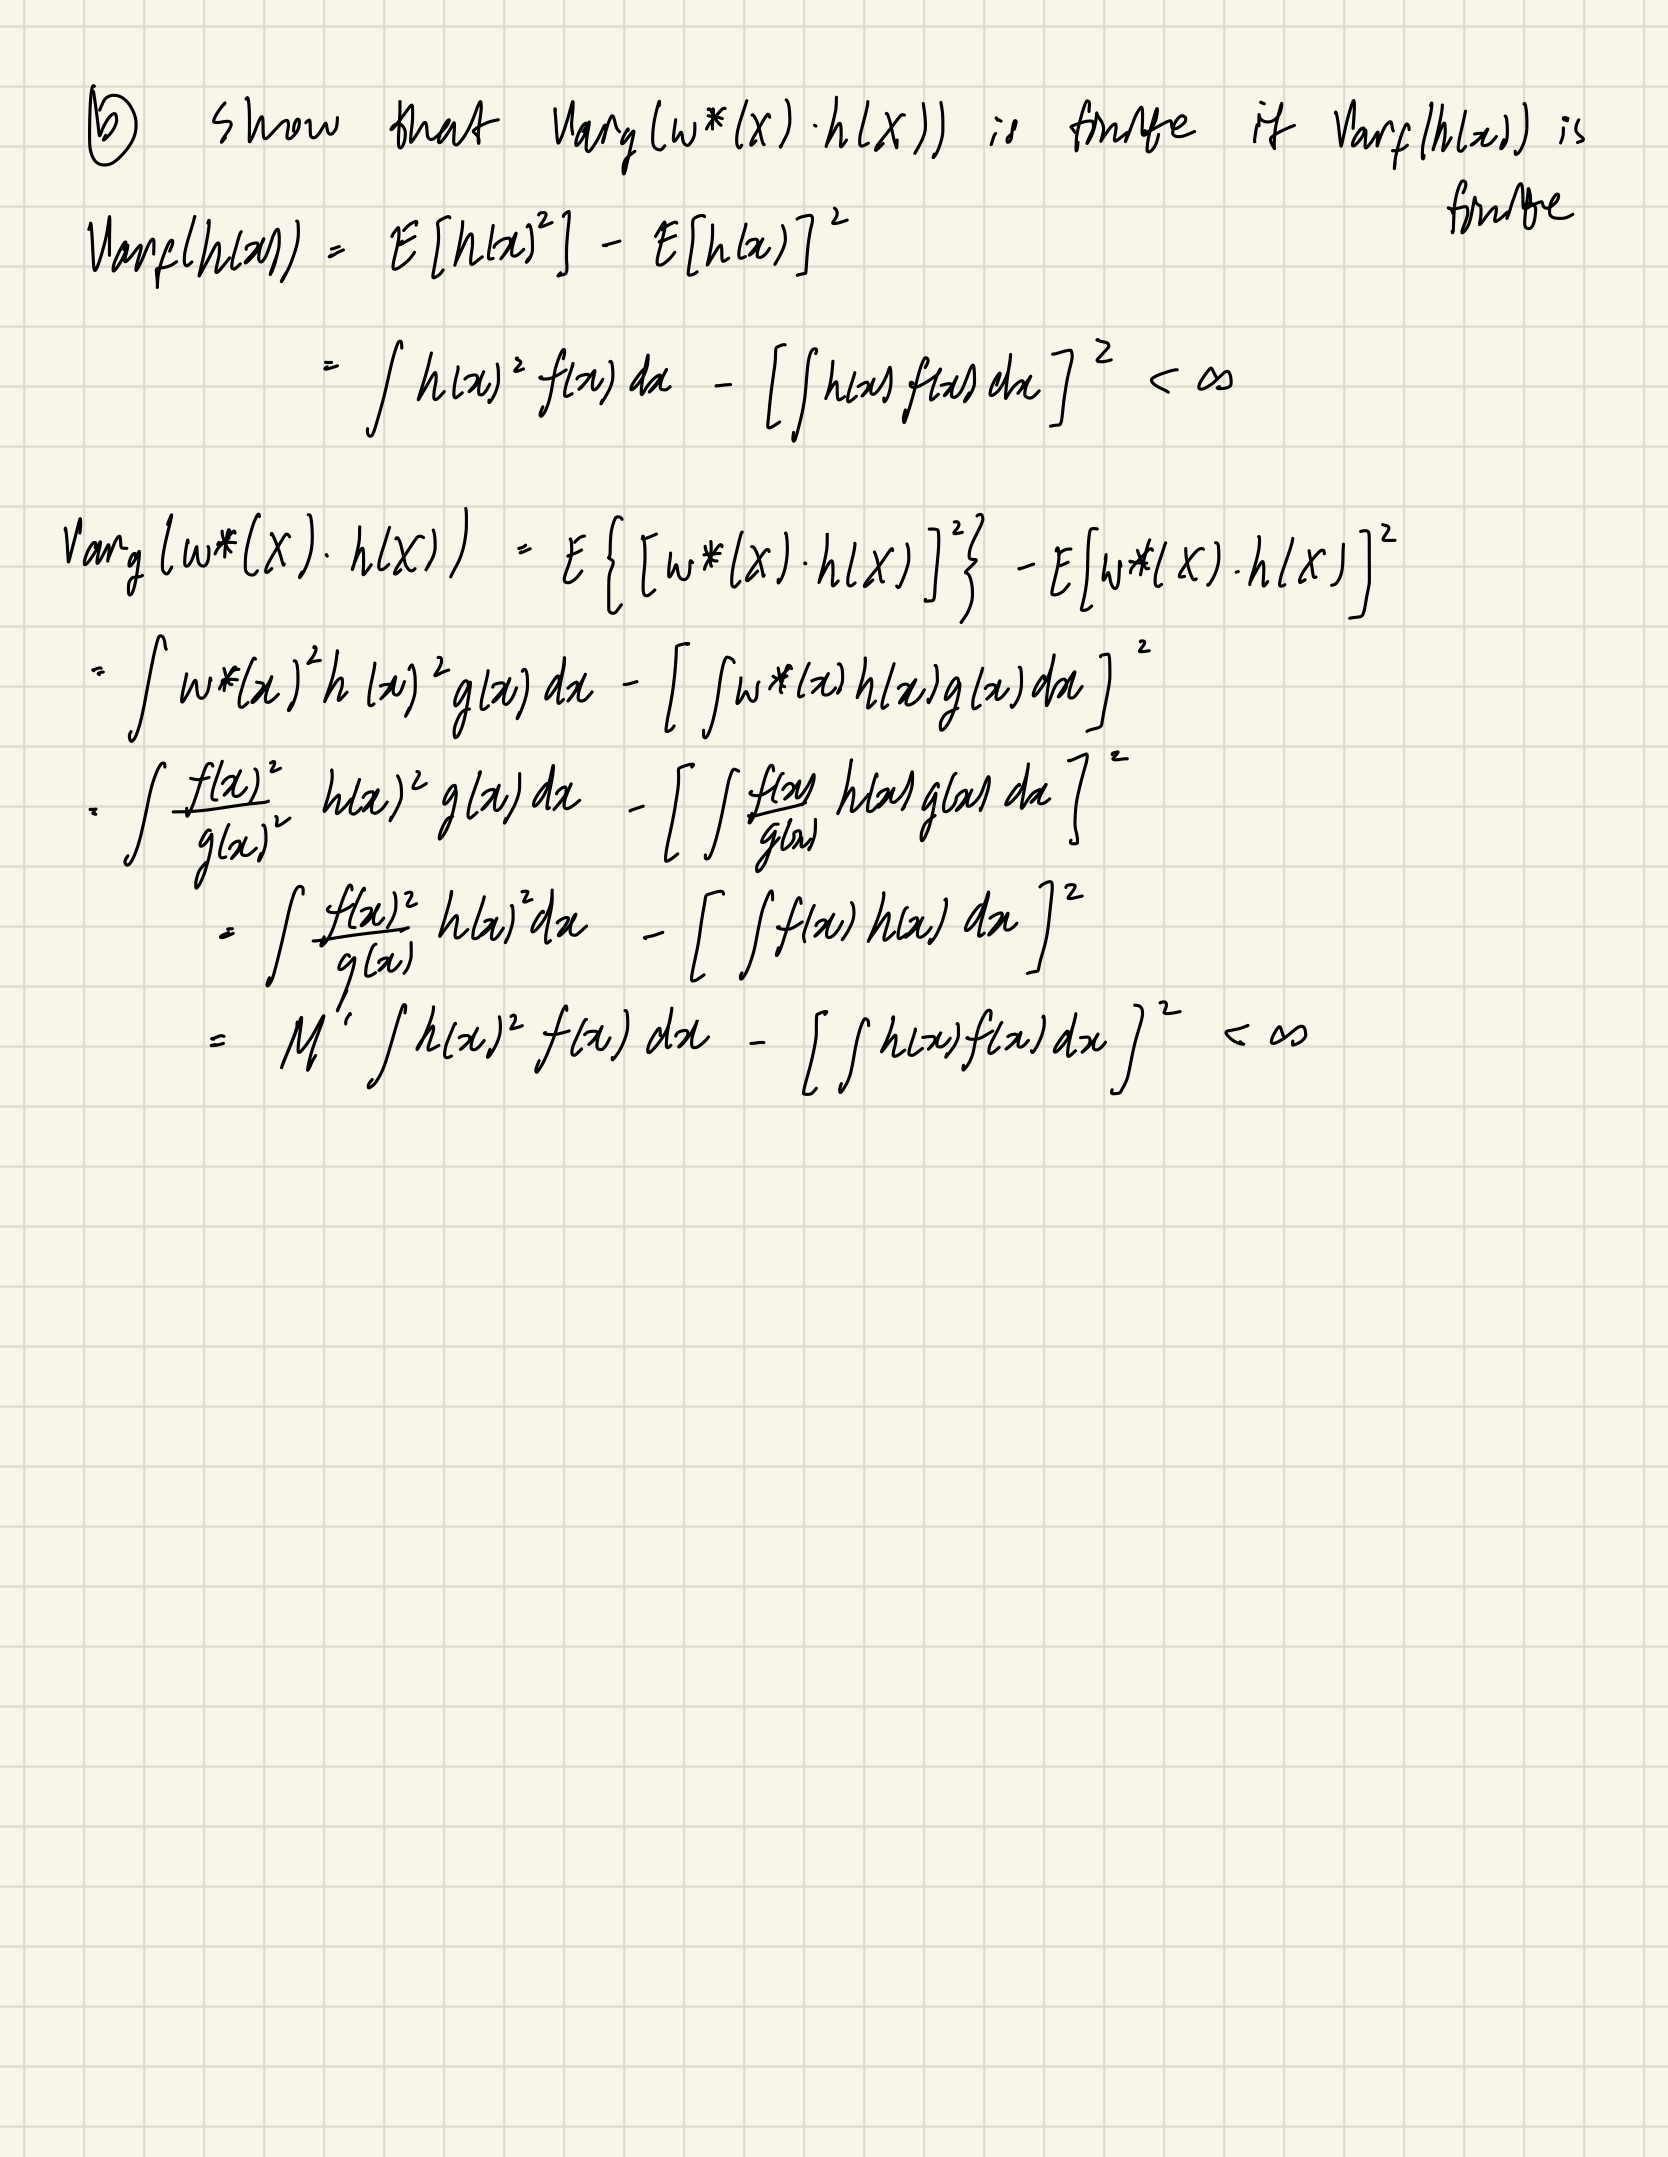 ⓑ show that Varg(w*(X)·h(X)) is finite if Varf(h(x)) is
finite
Varf(h(x)) = E[h(x)²] - E[h(x)]²
= ∫ h(x)² f(x) dx - [∫ h(x) f(x) dx]² < ∞
Varg(w*(X)·h(X)) = E{[w*(X)·h(X)]²} - E[w*(X)·h(X)]²
= ∫ w*(x)² h(x)² g(x) dx - [∫ w*(x) h(x) g(x) dx]²
= ∫ f(x)²/g(x)² h(x)² g(x) dx - [∫ f(x)/g(x) h(x) g(x) dx]²
= ∫ f(x)²/g(x) h(x)² dx - [∫ f(x) h(x) dx]²
= M' ∫ h(x)² f(x) dx - [∫ h(x) f(x) dx]² < ∞